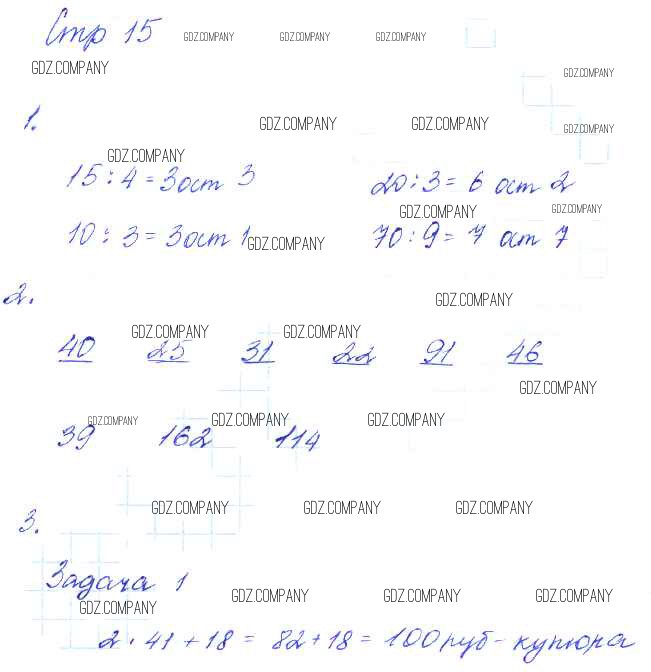 Стр 15 GDZ.COMPANY GDZ.COMPANY GDZ.COMPANY
GDZ.COMPANY GDZ.COMPANY
1. GDZ.COMPANY GDZ.COMPANY GDZ.COMPANY
GDZ.COMPANY
15 : 4 = 3 ост 3 20 : 3 = 6 ост 2
GDZ.COMPANY GDZ.COMPANY
10 : 3 = 3 ост 1 GDZ.COMPANY 70 : 9 = 7 ост 7
2. GDZ.COMPANY
GDZ.COMPANY GDZ.COMPANY
40 25 31 22 91 46
GDZ.COMPANY
GDZ.COMPANY GDZ.COMPANY GDZ.COMPANY
39 162 114
GDZ.COMPANY GDZ.COMPANY GDZ.COMPANY
3.
Задача 1
GDZ.COMPANY GDZ.COMPANY GDZ.COMPANY GDZ.COMPANY
2 · 41 + 18 = 82 + 18 = 100 руб - купюра